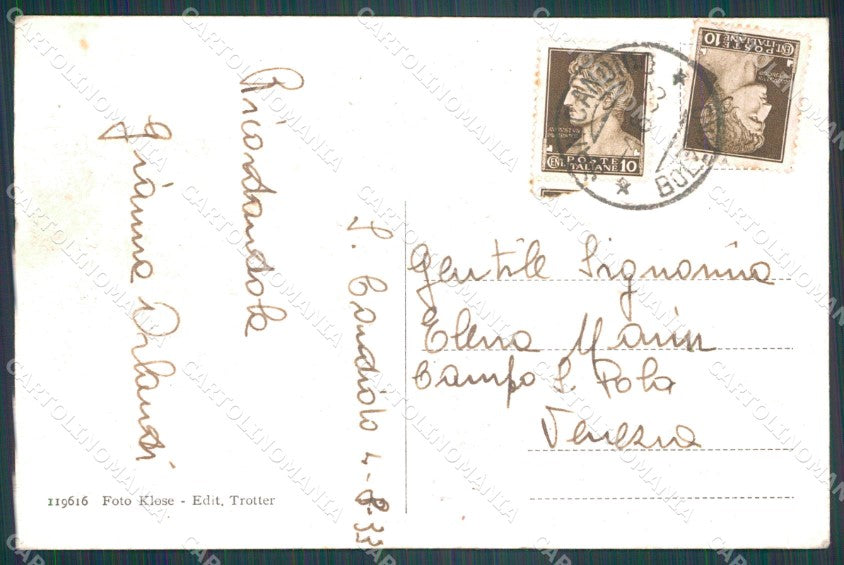 Ricordandola
Gianna Orlandi
S. Candido 4-8-33
Gentile Signorina
Elena Marin
Campo S. Polo
Venezia
119616 Foto Klose - Edit. Trotter
POSTE
ITALIANE
CENT. 10
POSTE
ITALIANE
CENT. 10
CARTOLINOMANIA